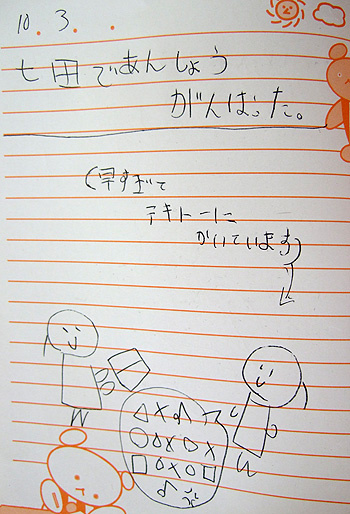 10.3..
七田であんしょう
がんばった。
(早すぎて
テキトーに
かいています)